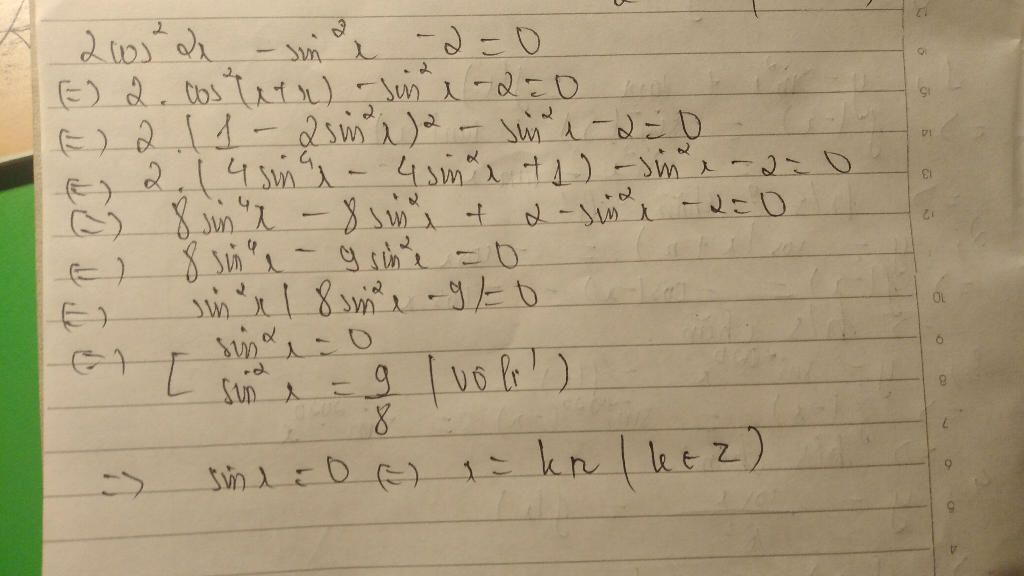 2cos²2x - sin²x - 2 = 0
(=) 2. cos²(x+x) - sin²x - 2 = 0
(=) 2.(1 - 2sin²x)² - sin²x - 2 = 0
(=) 2.(4sin⁴x - 4sin²x + 1) - sin²x - 2 = 0
(=) 8sin⁴x - 8sin²x + 2 - sin²x - 2 = 0
(=) 8sin⁴x - 9sin²x = 0
(=) sin²x(8sin²x - 9) = 0
(=) [ sin²x = 0
sin²x = 9/8 (vô lí)
=> sinx = 0 (=) x = kπ (k ∈ Z)